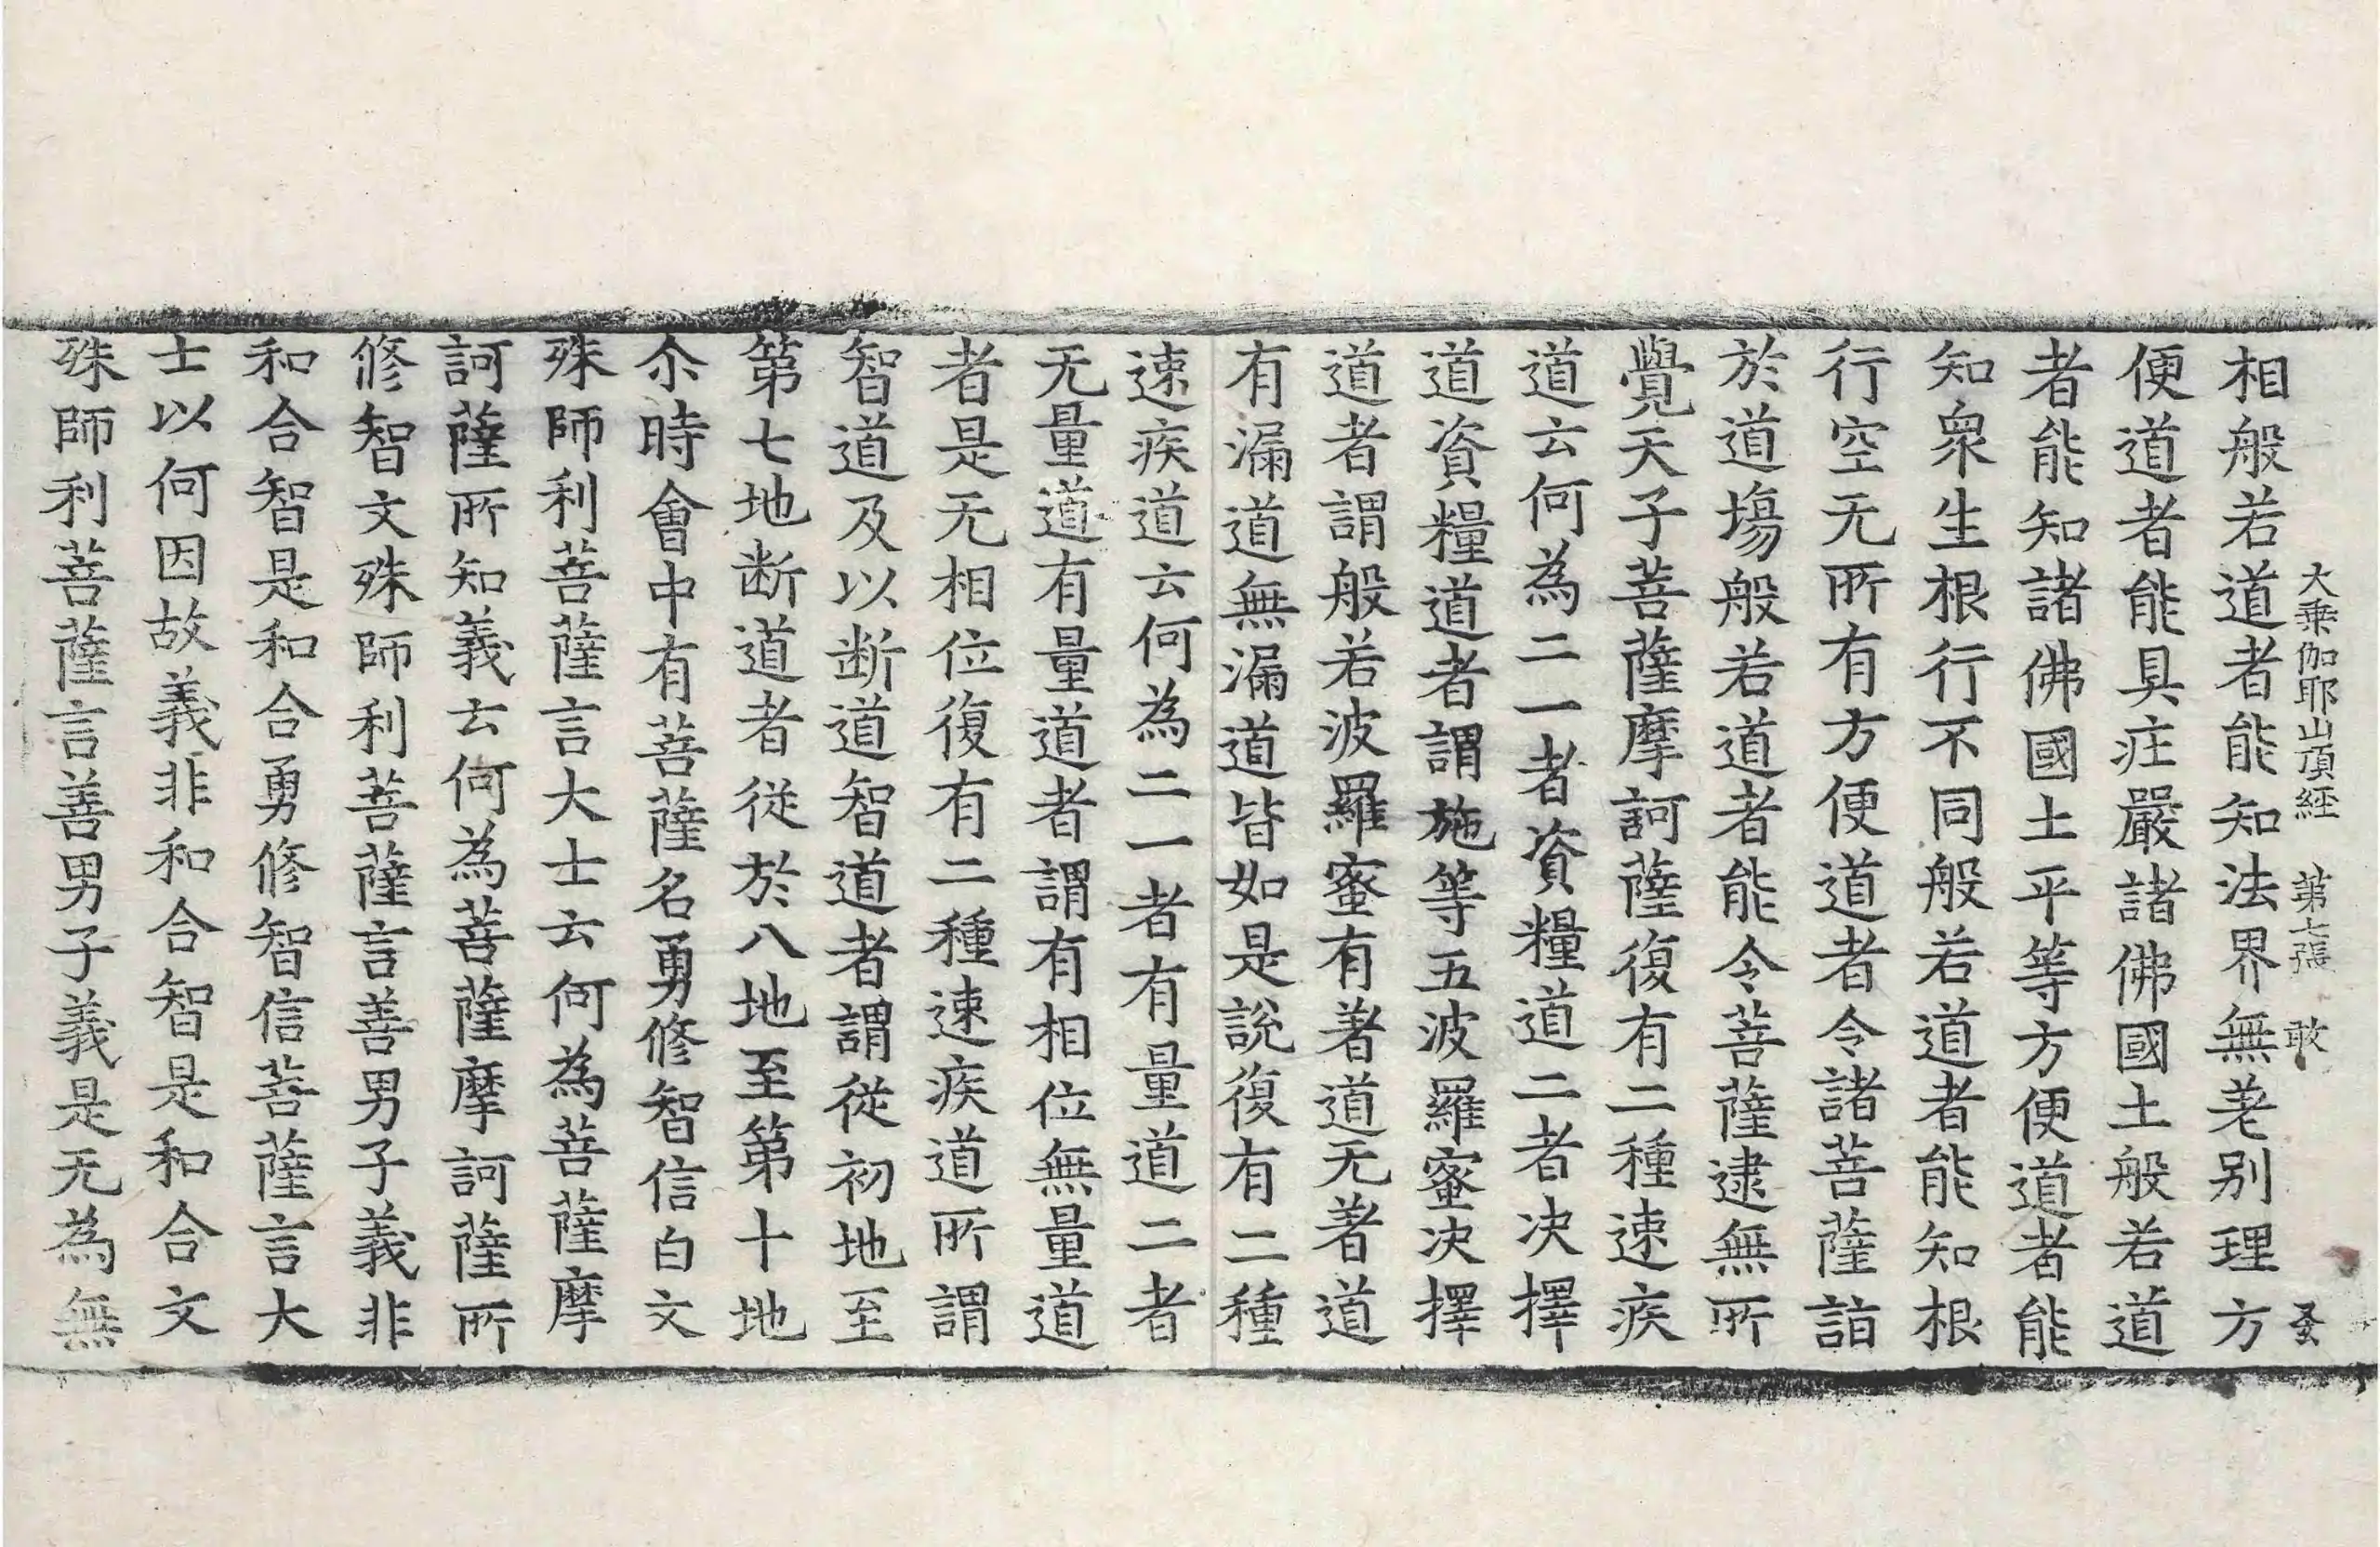 大乗伽耶山頂経 第七張 敢
相般若道者能知法界無差别理方
便道者能具庄嚴諸佛國土般若道
者能知諸佛國土平等方便道者能
知衆生根行不同般若道者能知根
行空无所有方便道者令諸菩薩詣
於道場般若道者能令菩薩逮無所
覺天子菩薩摩訶薩復有二種速疾
道云何為二一者資糧道二者决擇
道資糧道者謂施等五波羅蜜决擇
道者謂般若波羅蜜有著道无著道
有漏道無漏道皆如是說復有二種
速疾道云何為二一者有量道二者
无量道有量道者謂有相位無量道
者是无相位復有二種速疾道所謂
智道及以断道智道者謂従初地至
第七地断道者従於八地至第十地
尒時會中有菩薩名勇修智信白文
殊師利菩薩言大士云何為菩薩摩
訶薩所知義云何為菩薩摩訶薩所
修智文殊師利菩薩言善男子義非
和合智是和合勇修智信菩薩言大
士以何因故義非和合智是和合文
殊師利菩薩言善男子義是无為無